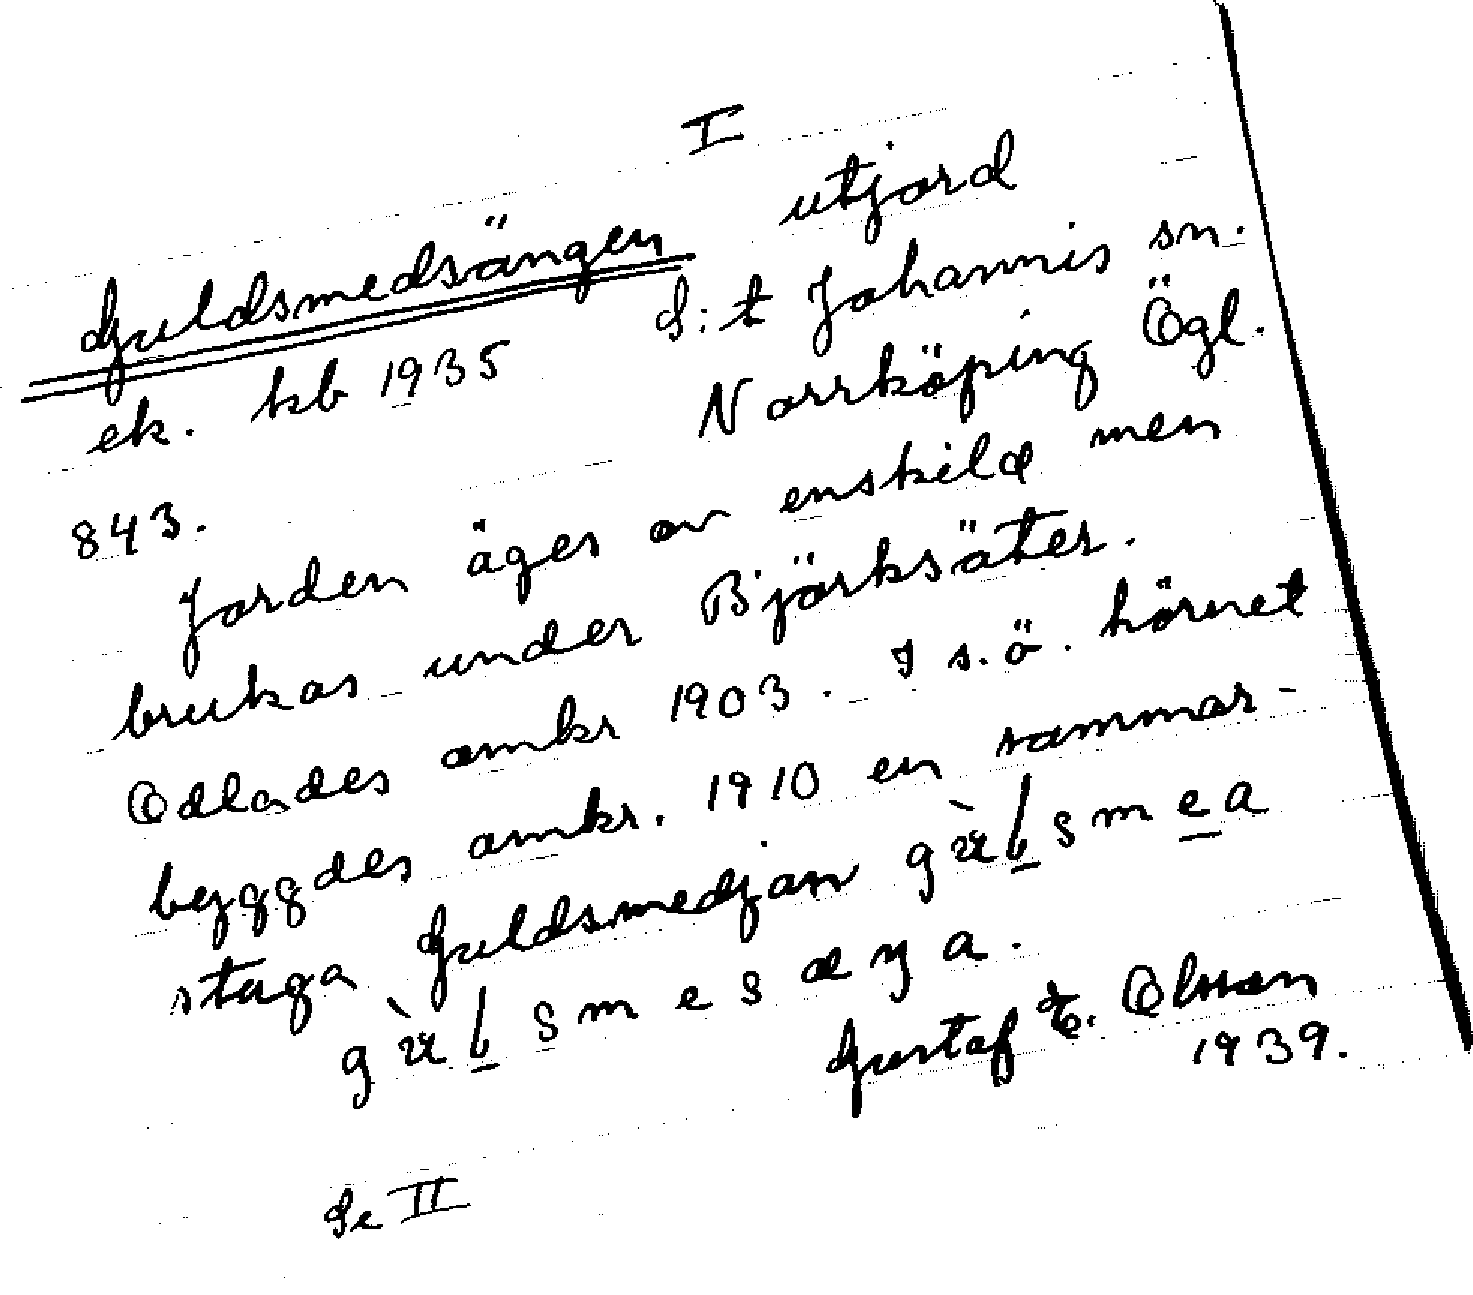 I
Guldsmedsängen utjord
ek. kb 1935 S:t Johannis sn.
843. Norrköping Ögl.
Jorden äges av enskild men
brukas under Björksäter.
Odlades omkr 1903. I s.ö. hörnet
byggdes omkr. 1910 en sommar-
stuga Guldsmedjan
Gustaf E. Olsson
1939.
Se II